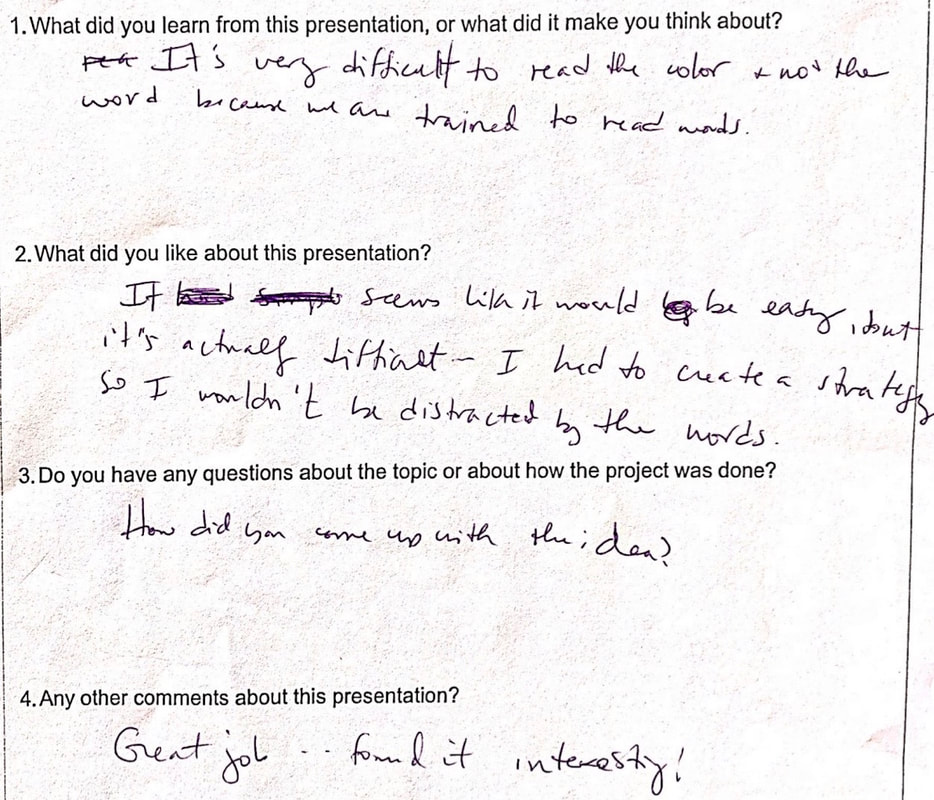 1. What did you learn from this presentation, or what did it make you think about?
It's very difficult to read the color & not the
word because we are trained to read words.
2. What did you like about this presentation?
It seems like it would be easy, but
it's actually difficult - I had to create a strategy
so I wouldn't be distracted by the words.
3. Do you have any questions about the topic or about how the project was done?
How did you come up with the idea?
4. Any other comments about this presentation?
Great job .. found it interesting!